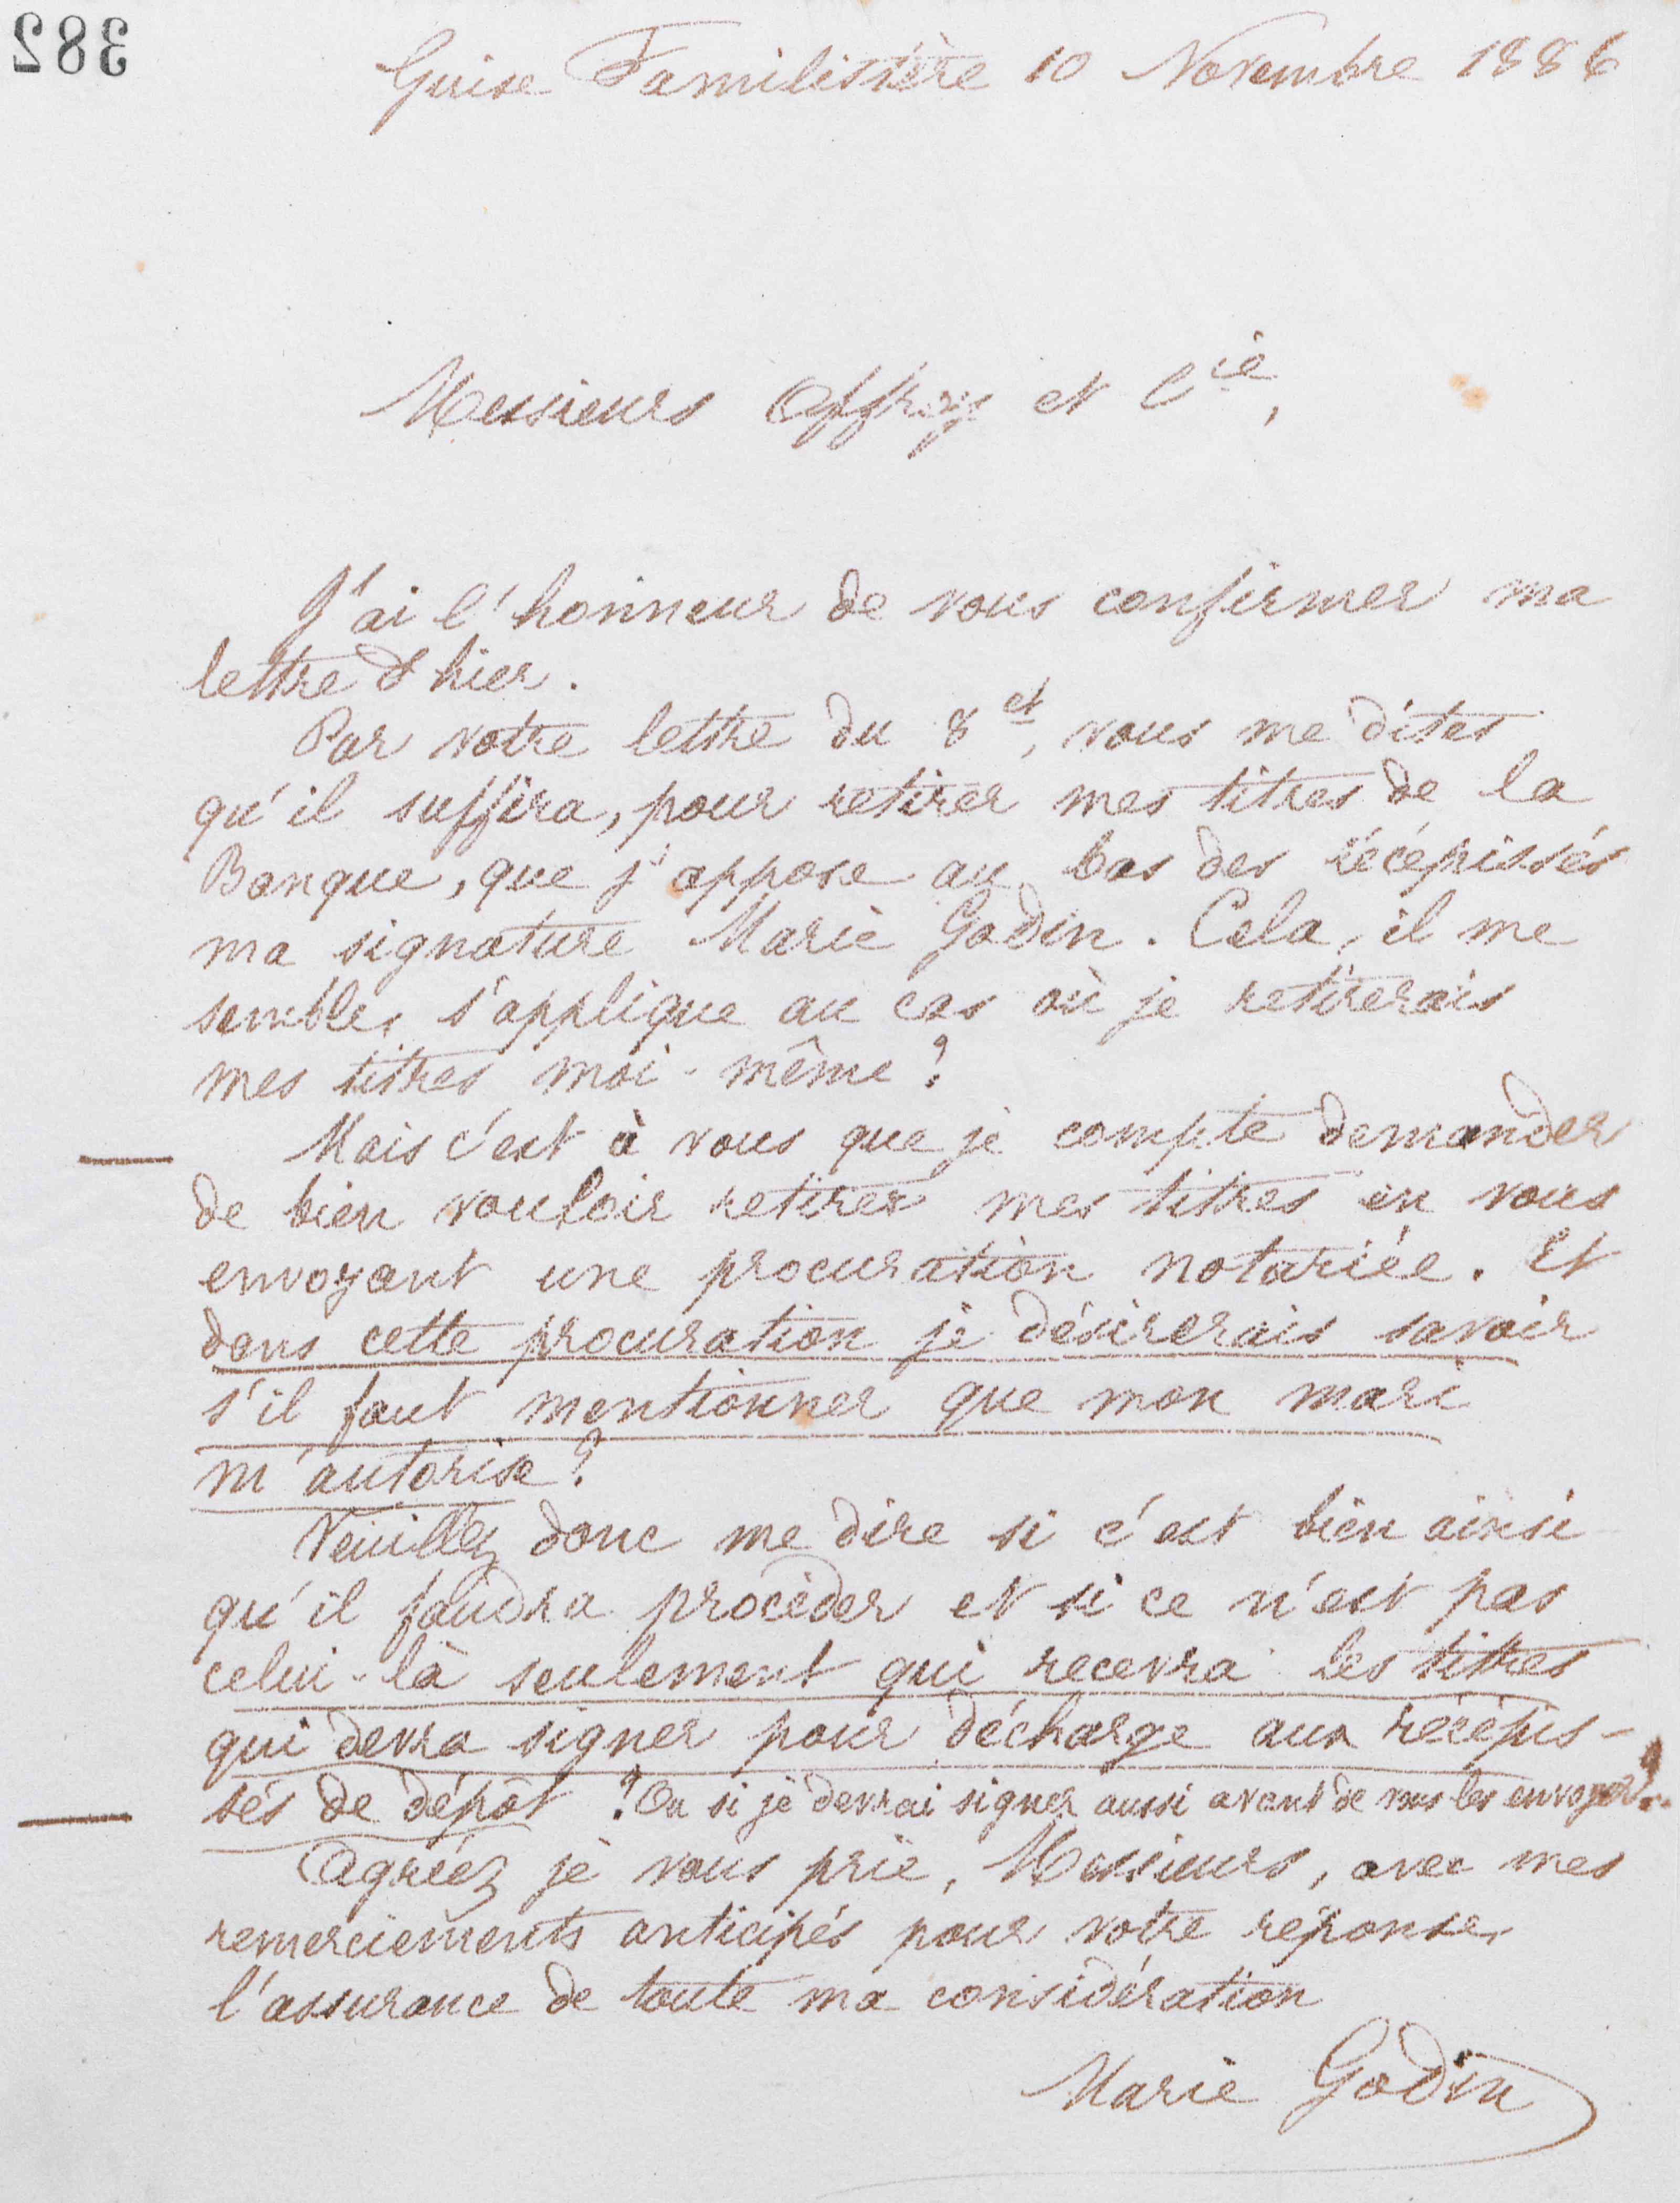 382
Guise Familistère 10 Novembre 1886
Messieurs Offroy et Cie,
J'ai l'honneur de vous confirmer ma
lettre d'hier.
Par votre lettre du 8 ct, vous me dites
qu'il suffira, pour retirer mes titres de la
Banque, que j'appose au bas des récépissés
ma signature Marie Godin. Cela, il me
semble, s'applique au cas où je retirerais
mes titres moi-même ?
Mais c'est à vous que je compte demander
de bien vouloir retirer mes titres en vous
envoyant une procuration notariée. Et
dans cette procuration je désirerais savoir
s'il faut mentionner que mon mari
m'autorise ?
Veuillez donc me dire si c'est bien ainsi
qu'il faudra procéder et si ce n'est pas
celui-là seulement qui recevra les titres
qui devra signer pour décharge aux récépis-
sés de dépôt ? Ou si je devrai signer aussi avant de vous les envoyer ?
Agréez je vous prie, Messieurs, avec mes
remerciements anticipés pour votre réponse,
l'assurance de toute ma considération
Marie Godin